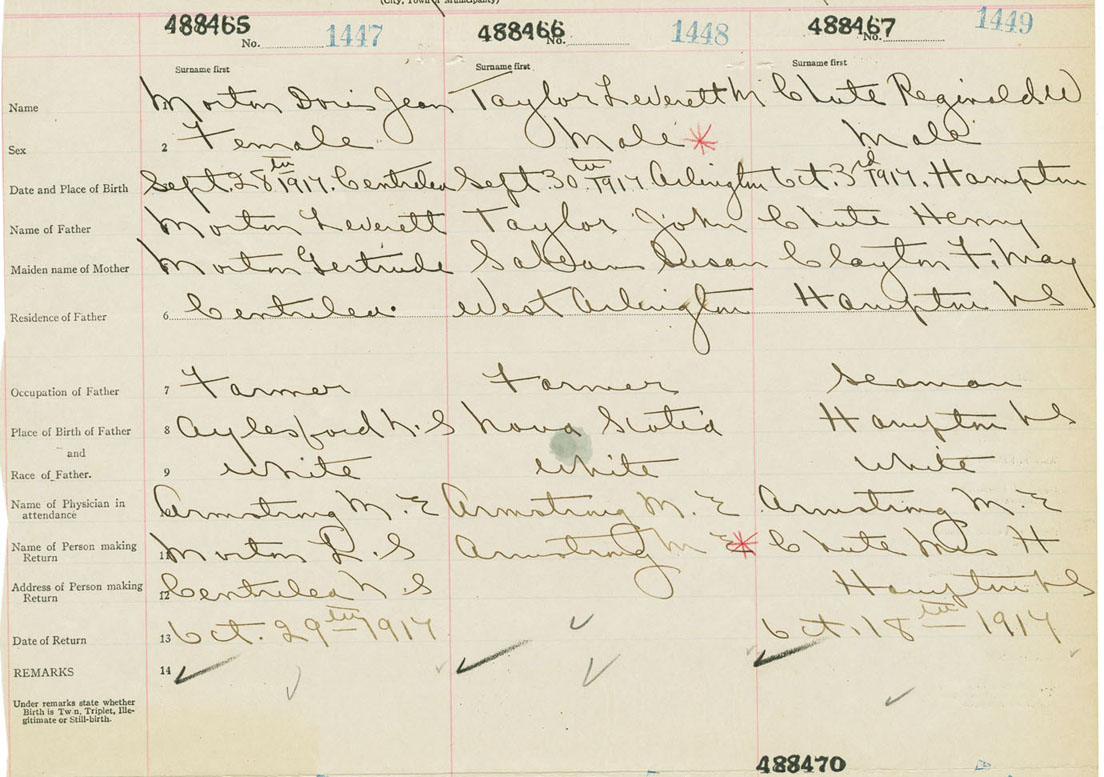 (City, Town or Municipality)
488465 488466 488467
No. 1447 No. 1448 No. 1449
Surname first Surname first Surname first
Name Morton Doris Jean Taylor Leverett M Chute Reginald W
Sex 2 Female Male * Male
Date and Place of Birth Sept. 28th 1917. Centrelea Sept. 30th 1917 Arlington Oct. 3rd 1917. Hampton
Name of Father Morton Leverett Taylor John Chute Henry
Maiden name of Mother Morton Gertrude Susan Clayton F. May
Residence of Father 6 Centrelea. West Arlington Hampton NS
Occupation of Father 7 Farmer Farmer Seaman
Place of Birth of Father 8 Aylesford N.S Nova Scotia Hampton NS
and
Race of Father. 9 White White White
Name of Physician in Armstrong M. E Armstrong M. E Armstrong M. E
attendance
Name of Person making 11 Morton L. S Armstrong M E * Chute Mrs H
Return
Address of Person making 12 Centrelea N.S Hampton NS
Return
Date of Return 13 Oct. 29th 1917 Oct. 18th 1917
REMARKS 14
Under remarks state whether
Birth is Twin, Triplet, Ille-
gitimate or Still-birth.
488470